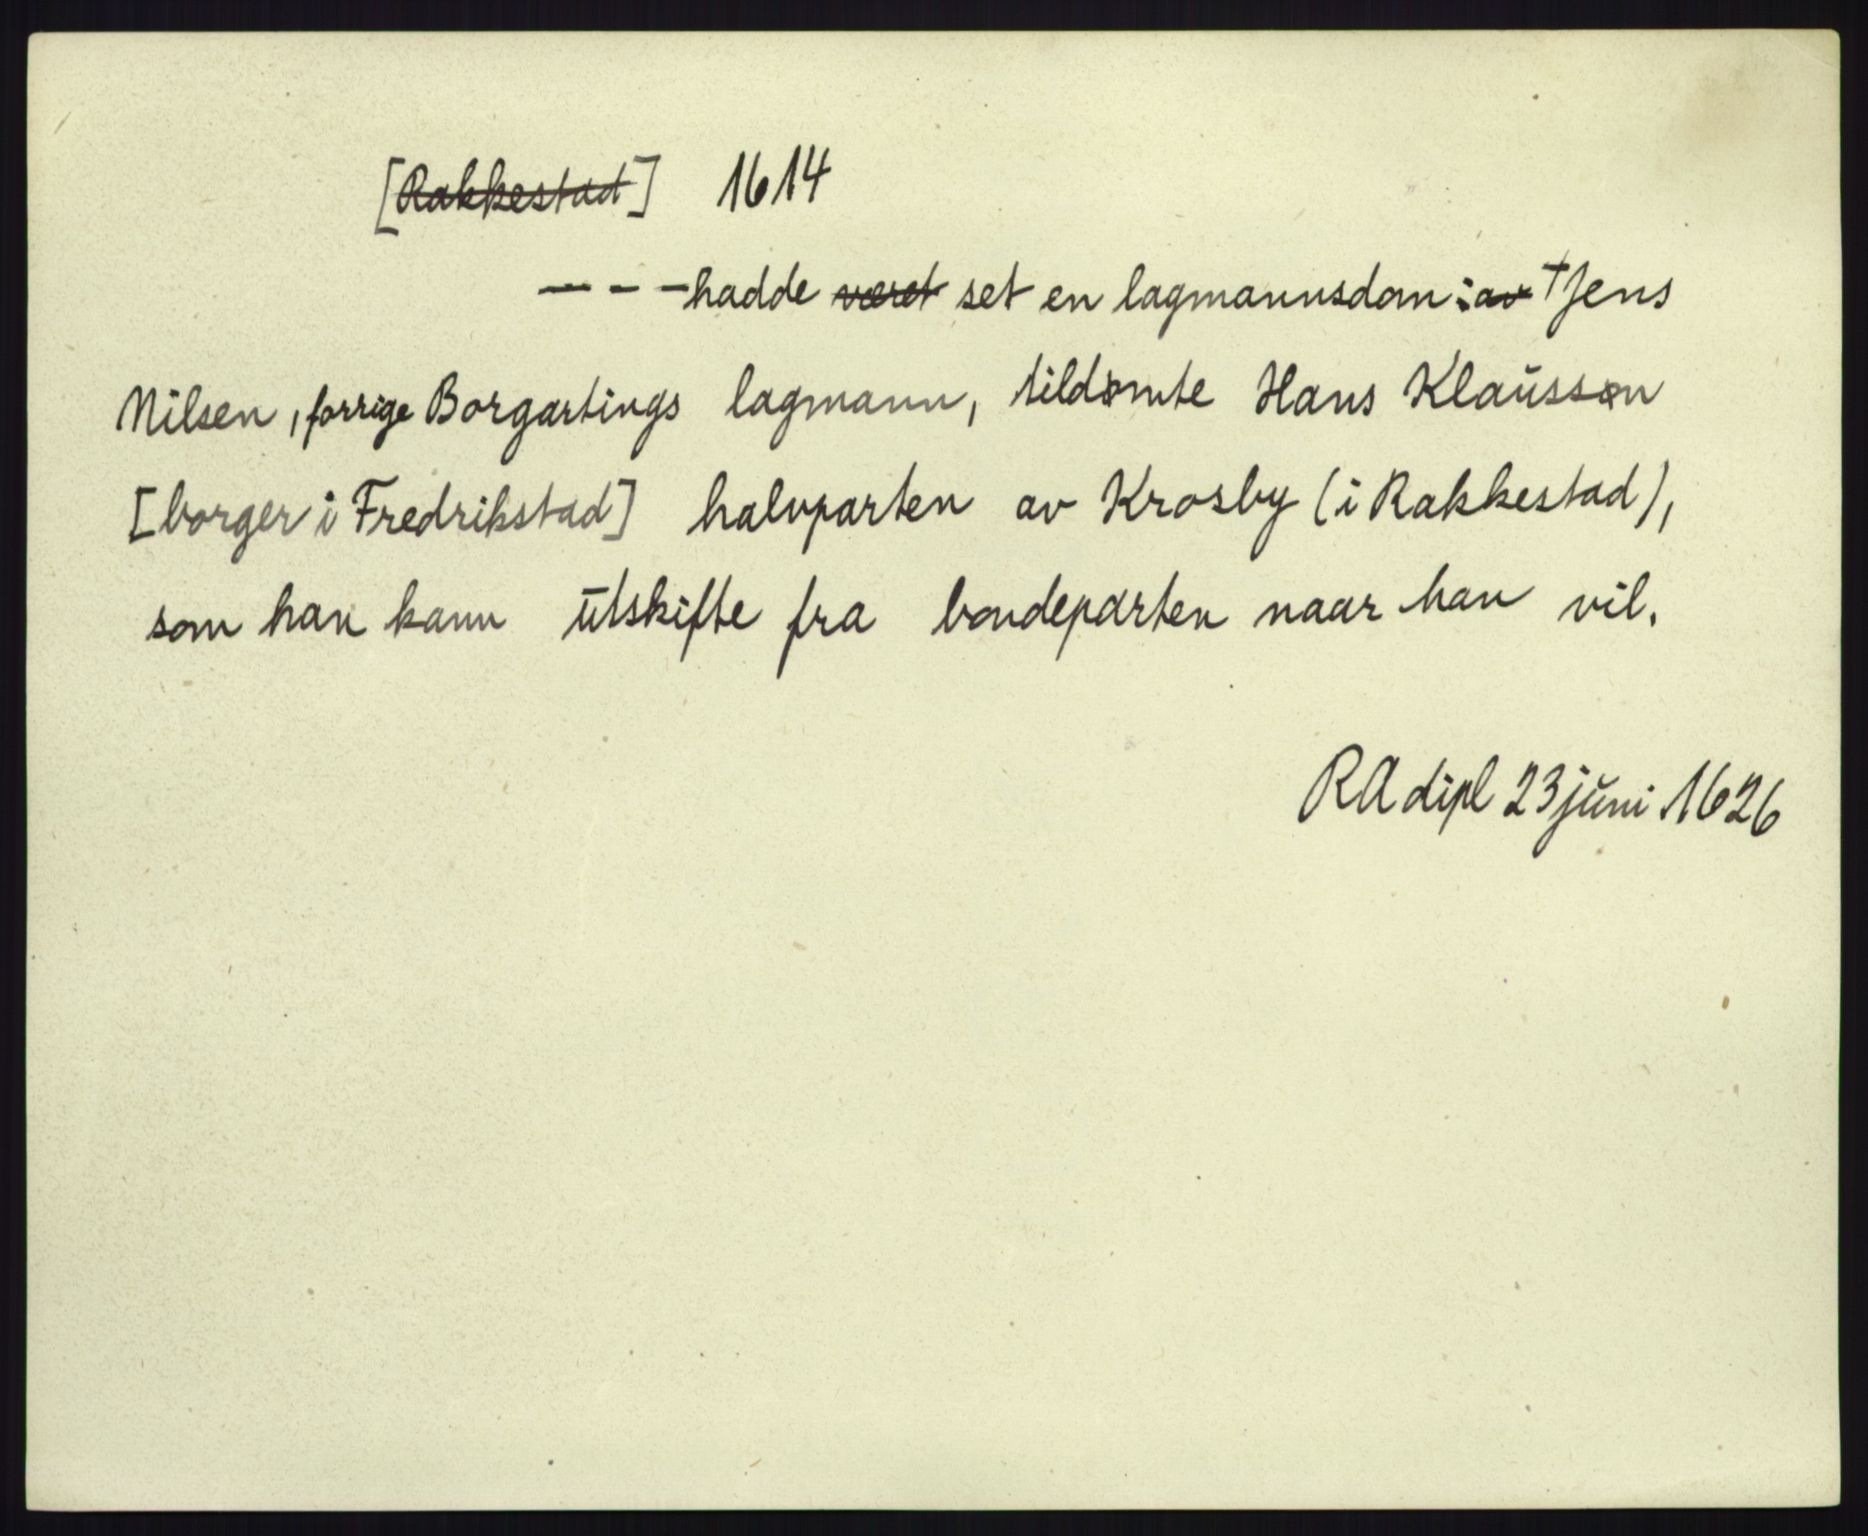 [~~Rakkestad~~] 1614
- - - hadde ~~været~~ set en lagmannsdom: ~~av~~ †Jens
Nilsen, forrige Borgartings lagmann, tildømte Hans Klaŭssøn
[borger i Fredrikstad] halvparten av Krosby (i Rakkestad),
som han kann ūtskifte fra bondeparten naar han vil.
RA dipl 23 jŭni 1626